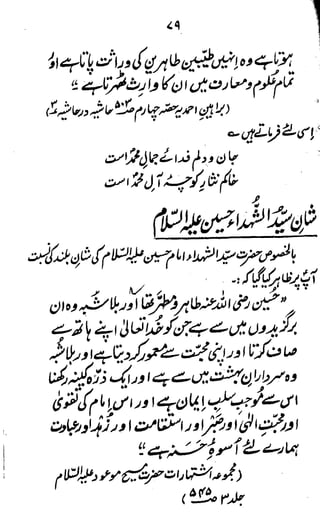 ۷۹
ہوتا ہے وہ انہیں طیّبین طاہرین کی وراثت پاتا ہے اور
تمام علوم و معارف میں ان کا وارث ٹھہرتا ہے‘‘
(براہین احمدیہ حصہ چہارم ص۵۰۳ حاشیہ در حاشیہ ۳)
اسی لئے فرماتے ہیں ؎
جان و دلم فدائے جمالِ محمدؐ است
خاکم نثار کوچۂ آلِ محمدؐ است
شانِ سیّد الشہداء حسین علیہ السلام
بالخصوص حضرت سیّد الشہداء امام حسین علیہ السلام کی شان بلند کی نسبت
آپ پر ظاہر کیا گیا کہ :-
’’حسین رضی اللہ عنہ طاہر و مطہّر تھا اور بلاشبہ وہ ان
برگزیدوں میں سے ہے جن کو خدا تعالیٰ اپنے ہاتھ سے
صاف کرتا اور اپنی محبت سے معمور کر دیتا ہے اور بلاشبہ
وہ سردارانِ بہشت میں سے ہے اور ایک ذرّہ کینہ رکھنا
اس سے موجب سلب ایمان ہے اور اس امام کی تقویٰ
اور محبت الٰہی اور صبر اور استقامت اور زہد اور عبادت
ہمارے لئے اسوۂ حسنہ ہے‘‘
(مجموعہ اشتہارات حضرت مسیح موعود علیہ السلام
جلد ۳ ص ۵۴۵)